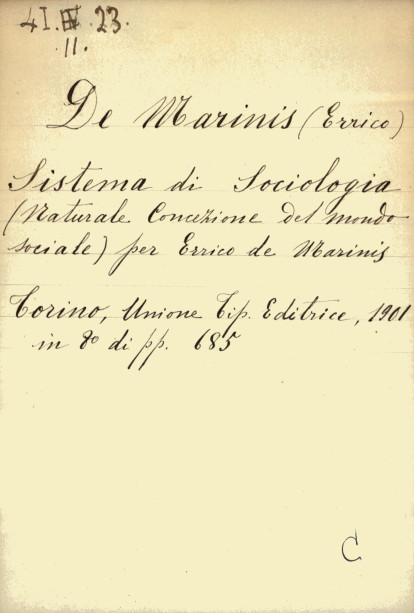 41. IV. 23.
11.
De Marinis (Errico)
Sistema di Sociologia
(Naturale Concezione del mondo
sociale) per Errico de Marinis
Torino, Unione Tip. Editrice, 1901
in 8º di pp. 685
C